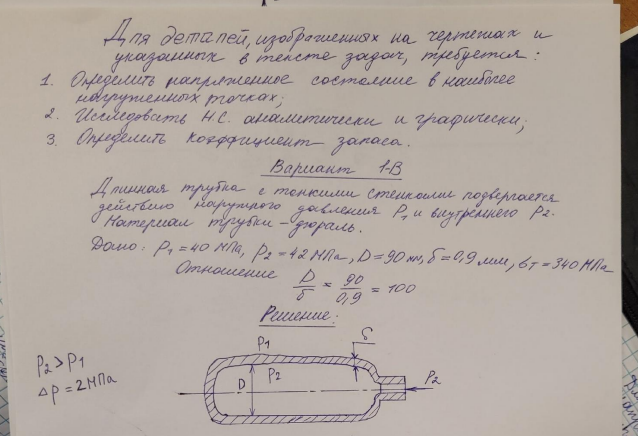 Для деталей, изображенных на чертежах и
указанных в тексте задач, требуется:
1. Определить напряженное состояние в наиболее
нагруженных точках;
2. Исследовать Н.С. аналитически и графически;
3. Определить коэффициент запаса.
Вариант 1-В
Длинная трубка с тонкими стенками подвергается
действию наружного давления P1 и внутреннего P2.
Материал трубки – дюраль.
Дано: P1 = 40 МПа, P2 = 42 МПа, D = 90 мм, δ = 0,9 мм, σт = 340 МПа
Отношение D/δ = 90/0,9 = 100
Решение:
P2 > P1
Δp = 2 МПа
P1
δ
D
P2
P2